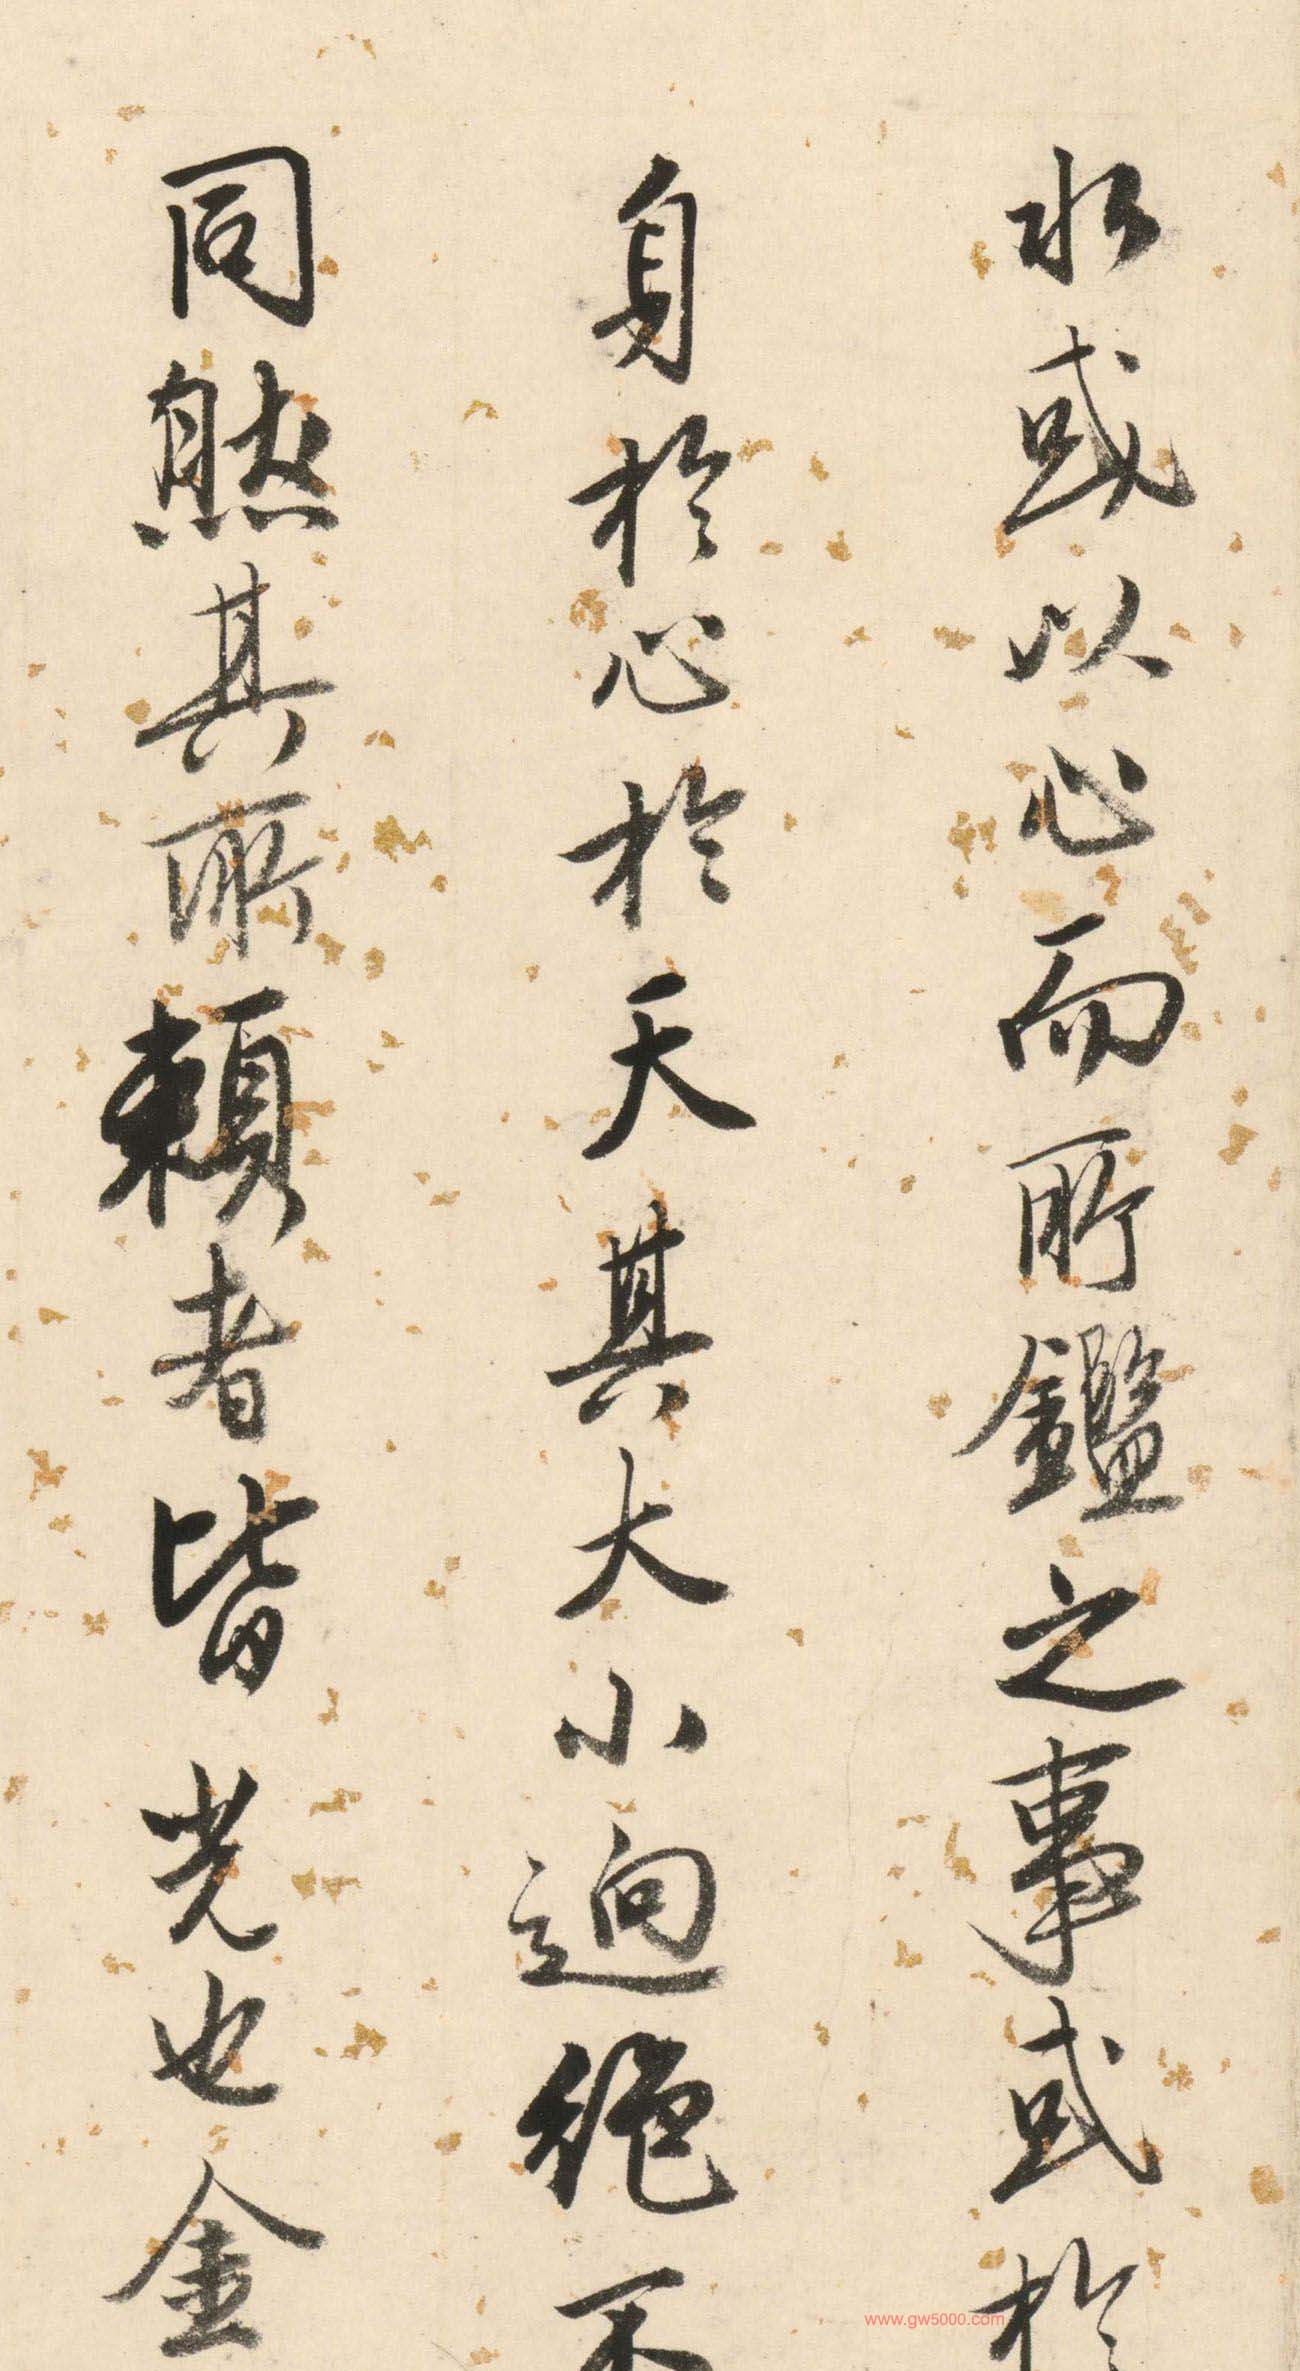 水或以心而所鑑之事或於
身於心於天其大小迥絕不
同然其所賴者皆光也金
www.gw5000.com